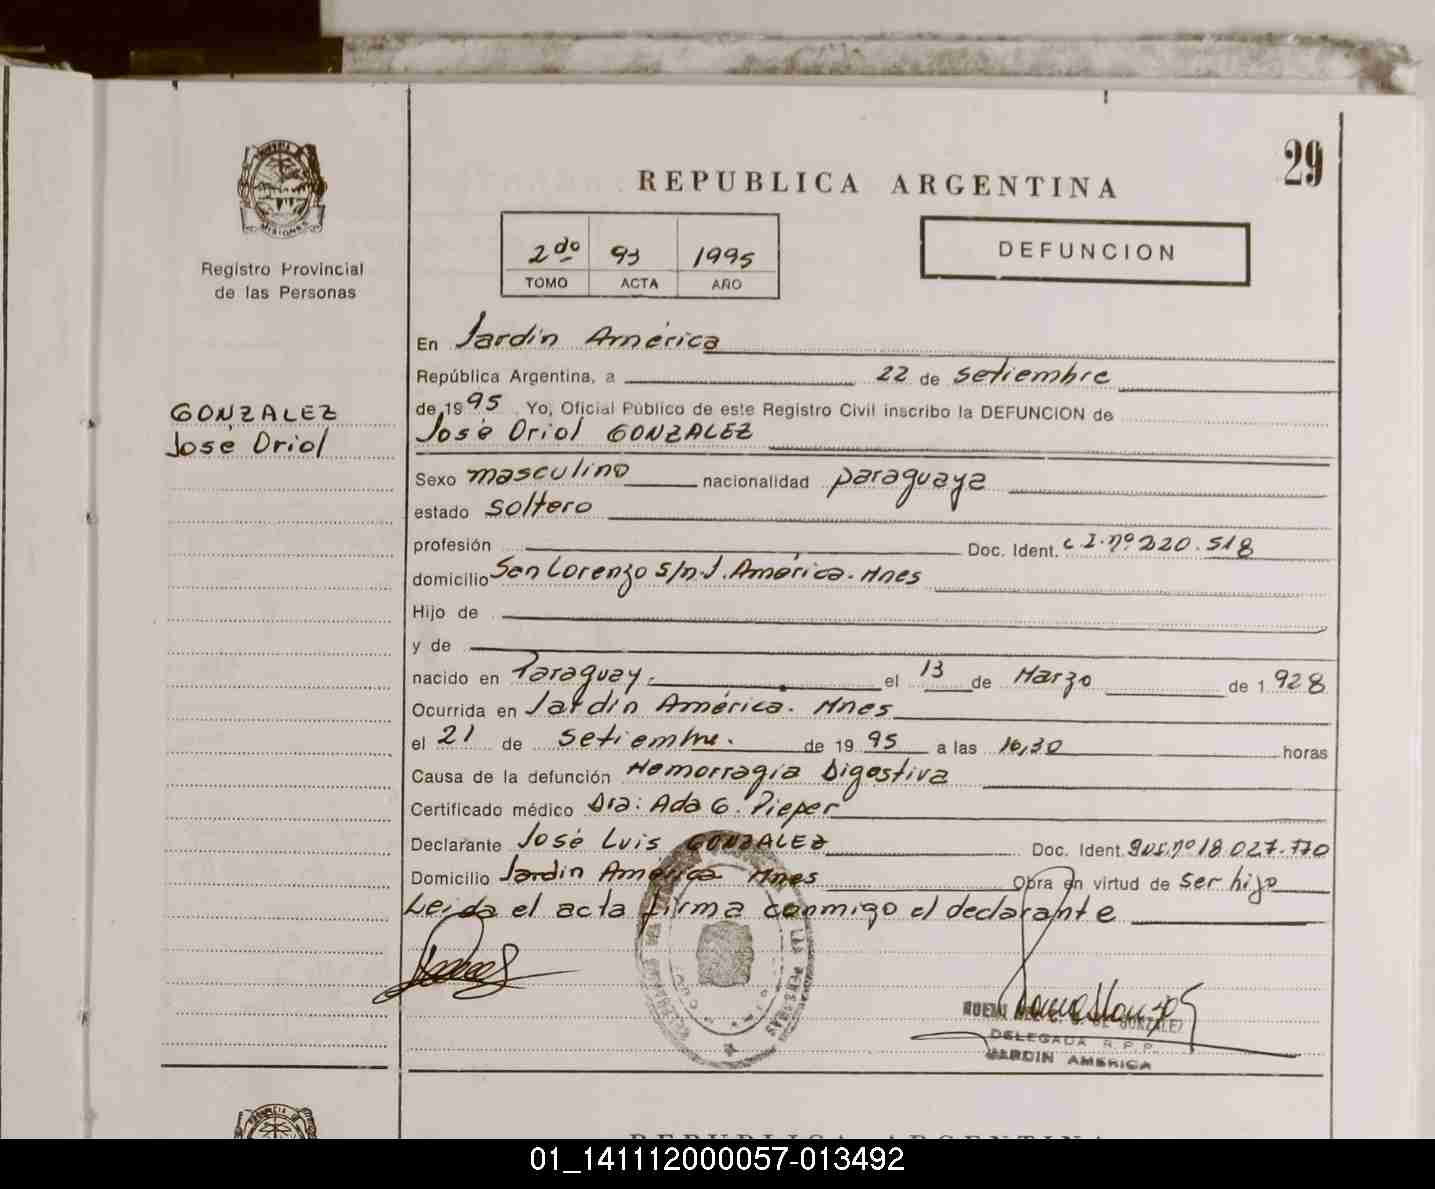 29
REPUBLICA ARGENTINA
MISIONES
Registro Provincial
de las Personas
2do 93 1995
TOMO ACTA AÑO
DEFUNCION
GONZALEZ
José Oriol
En Jardín América
República Argentina, a 22 de setiembre
de 1995 Yo, Oficial Público de este Registro Civil inscribo la DEFUNCION de
José Oriol GONZALEZ
Sexo masculino nacionalidad paraguaya
estado soltero
profesión Doc. Ident. C.I. nº 220.518
domicilio San Lorenzo s/n. J. América. Mnes
Hijo de
y de
nacido en Paraguay. el 13 de Marzo de 1.928
Ocurrida en Jardín América. Mnes
el 21 de setiembre. de 1995 a las 16,30 horas
Causa de la defunción Hemorragia Digestiva
Certificado médico Dra: Ada G. Pieper
Declarante José Luis GONZALEZ Doc. Ident. nº 18.027.770
Domicilio Jardín América Mnes Obra en virtud de ser hijo
Leida el acta firma conmigo el declarante
LAS PERSONAS
DE GONZALEZ
DELEGADA R.P.P.
JARDIN AMERICA
REPUBLICA ARGENTINA
01_141112000057-013492